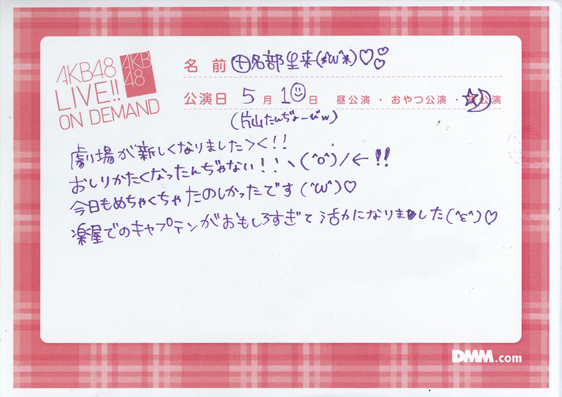 AKB48
LIVE!!
ON DEMAND
AKB
48
名前 十名部里来(*'ω'*)♡♡♡
公演日 5月10日 昼公演・おやつ公演・公演
(片山たんぢょーびw)
劇場が新しくなりました><!!
おしりかたくなったんぢゃない!!ヽ(^o^)/←!!
今日もめちゃくちゃたのしかったです(^ω^)♡
楽屋でのキャプテンがおもしろすぎて活力になりました(^ε^)♡
DMM.com